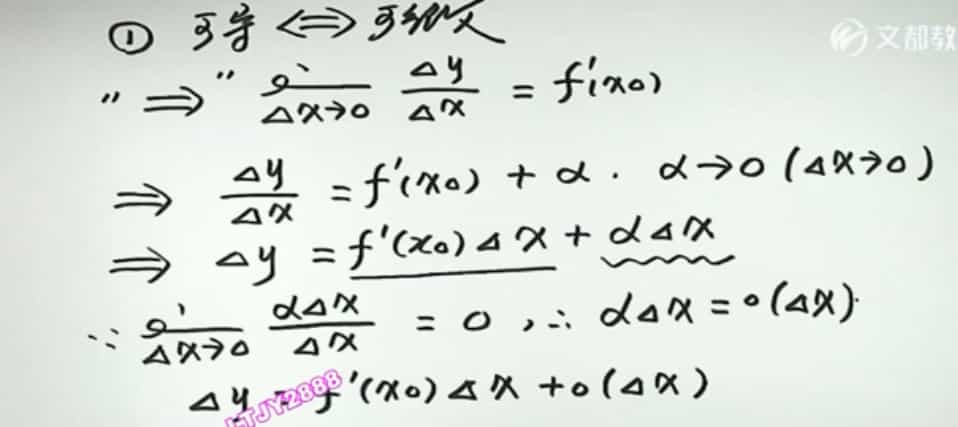 ① 可导 ⟺ 可微 文都教
"⟹" lim Δx→0 Δy/Δx = f'(x₀)
⟹ Δy/Δx = f'(x₀) + α. α→0 (Δx→0)
⟹ Δy = f'(x₀)Δx + αΔx
∵ lim Δx→0 αΔx/Δx = 0, ∴ αΔx = o(Δx).
Δy = f'(x₀)Δx + o(Δx)
LTJY2888